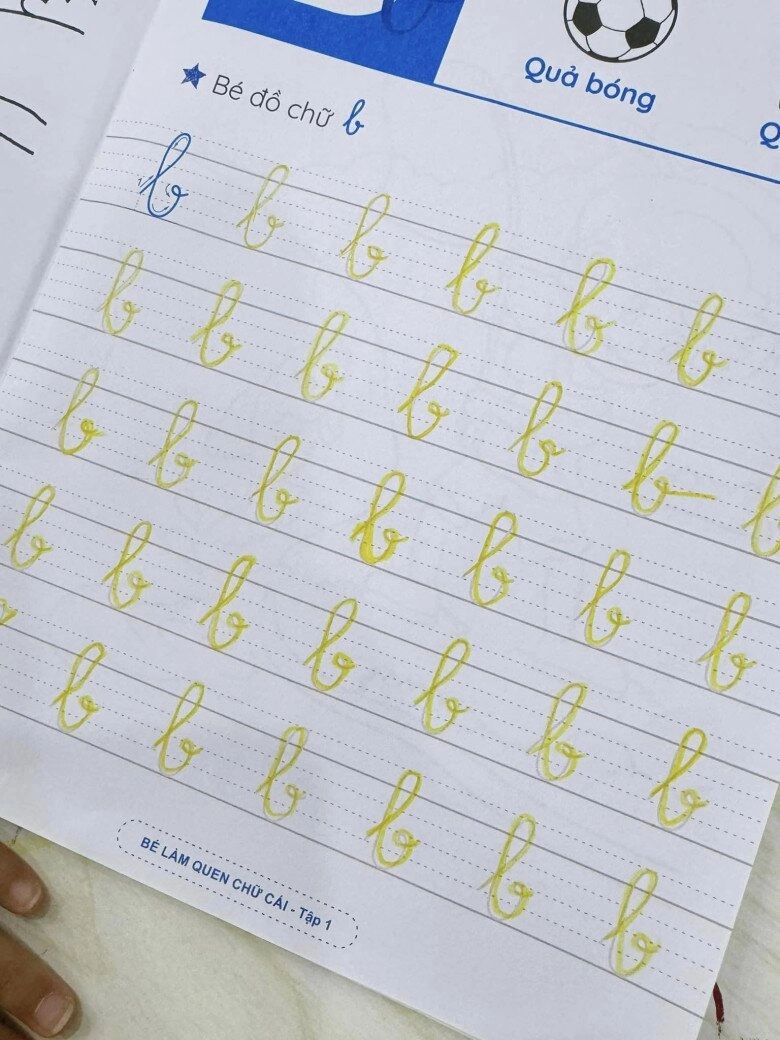 Quả bóng
Q
Bé đồ chữ b
b b b b b b
b b b b b b b
b b b b b b b
b b b b b b b
b b b b b b
BÉ LÀM QUEN CHỮ CÁI - Tập 1